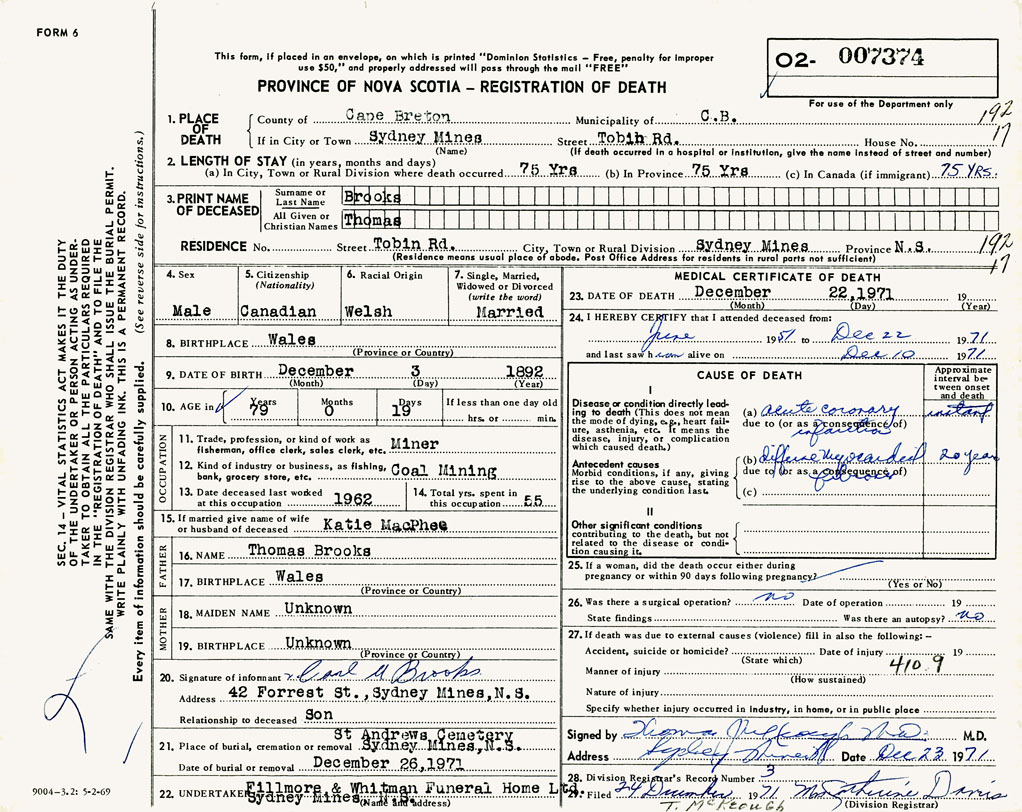 FORM 6
This form, if placed in an envelope, on which is printed "Dominion Statistics – Free, penalty for improper
use $50," and properly addressed will pass through the mail "FREE"
PROVINCE OF NOVA SCOTIA – REGISTRATION OF DEATH
02- 007374
For use of the Department only
192
17
1. PLACE OF DEATH
County of Cape Breton Municipality of C.B.
If in City or Town Sydney Mines Street Tobin Rd. House No.
(Name) (If death occurred in a hospital or institution, give the name instead of street and number)
2. LENGTH OF STAY (in years, months and days)
(a) In City, Town or Rural Division where death occurred 75 Yrs (b) In Province 75 Yrs (c) In Canada (if immigrant) 75 YRS.
3. PRINT NAME OF DECEASED
Surname or Last Name Brooks
All Given or Christian Names Thomas
RESIDENCE No. Street Tobin Rd. City, Town or Rural Division Sydney Mines Province N.S.
(Residence means usual place of abode. Post Office Address for residents in rural parts not sufficient)
192
17
4. Sex
Male
5. Citizenship
(Nationality)
Canadian
6. Racial Origin
Welsh
7. Single, Married,
Widowed or Divorced
(write the word)
Married
8. BIRTHPLACE Wales
(Province or Country)
9. DATE OF BIRTH December 3 1892
(Month) (Day) (Year)
10. AGE in Years Months Days If less than one day old
79 0 19 hrs. or min.
OCCUPATION
11. Trade, profession, or kind of work as
fisherman, office clerk, sales clerk, etc. Miner
12. Kind of industry or business, as fishing,
bank, grocery store, etc. Coal Mining
13. Date deceased last worked
at this occupation 1962
14. Total yrs. spent in
this occupation 55
15. If married give name of wife
or husband of deceased Katie MacPhee
FATHER
16. NAME Thomas Brooks
17. BIRTHPLACE Wales
(Province or Country)
MOTHER
18. MAIDEN NAME Unknown
19. BIRTHPLACE Unknown
(Province or Country)
20. Signature of informant Brooks
Address 42 Forrest St., Sydney Mines, N.S.
Relationship to deceased Son
St Andrews Cemetery
21. Place of burial, cremation or removal Sydney Mines, N.S.
Date of burial or removal December 26, 1971
22. UNDERTAKER Fillmore & Whitman Funeral Home Ltd.
Sydney Mines N.S.
(Name and address)
MEDICAL CERTIFICATE OF DEATH
23. DATE OF DEATH December 22, 1971 19
(Month) (Day) (Year)
24. I HEREBY CERTIFY that I attended deceased from:
June 1951 to Dec 22 1971
and last saw him alive on Dec 10 1971
CAUSE OF DEATH
Approximate
interval be-
tween onset
and death
I
Disease or condition directly lead-
ing to death (This does not mean
the mode of dying, e.g., heart fail-
ure, asthenia, etc. It means the
disease, injury, or complication
which caused death.)
(a) acute coronary instant
due to (or as a consequence of)
infarction
Antecedent causes
Morbid conditions, if any, giving
rise to the above cause, stating
the underlying condition last.
(b) diffuse myocardial 20 years
due to (or as a consequence of)
fibrosis
(c)
II
Other significant conditions
contributing to the death, but not
related to the disease or condi-
tion causing it.
25. If a woman, did the death occur either during
pregnancy or within 90 days following pregnancy?
(Yes or No)
26. Was there a surgical operation? no Date of operation 19
State findings Was there an autopsy? no
27. If death was due to external causes (violence) fill in also the following: –
Accident, suicide or homicide? Date of injury 19
(State which)
410 9
Manner of injury
(How sustained)
Nature of injury
Specify whether injury occurred in industry, in home, or in public place
Signed by Thomas M.D.
Address Date Dec 23 1971
28. Division Registrar's Record Number 3
29. Filed 24 December 1971 Davis
T. McKeough (Division Registrar)
SEC. 14 – VITAL STATISTICS ACT MAKES IT THE DUTY
OF THE UNDERTAKER OR PERSON ACTING AS UNDER-
TAKER TO OBTAIN ALL THE PARTICULARS REQUIRED
IN THE "REGISTRATION OF DEATH" AND TO FILE THE
SAME WITH THE DIVISION REGISTRAR WHO SHALL ISSUE THE BURIAL PERMIT.
WRITE PLAINLY WITH UNFADING INK. THIS IS A PERMANENT RECORD.
Every item of information should be carefully supplied. (See reverse side for instructions.)
9004–3.2: 5-2-69